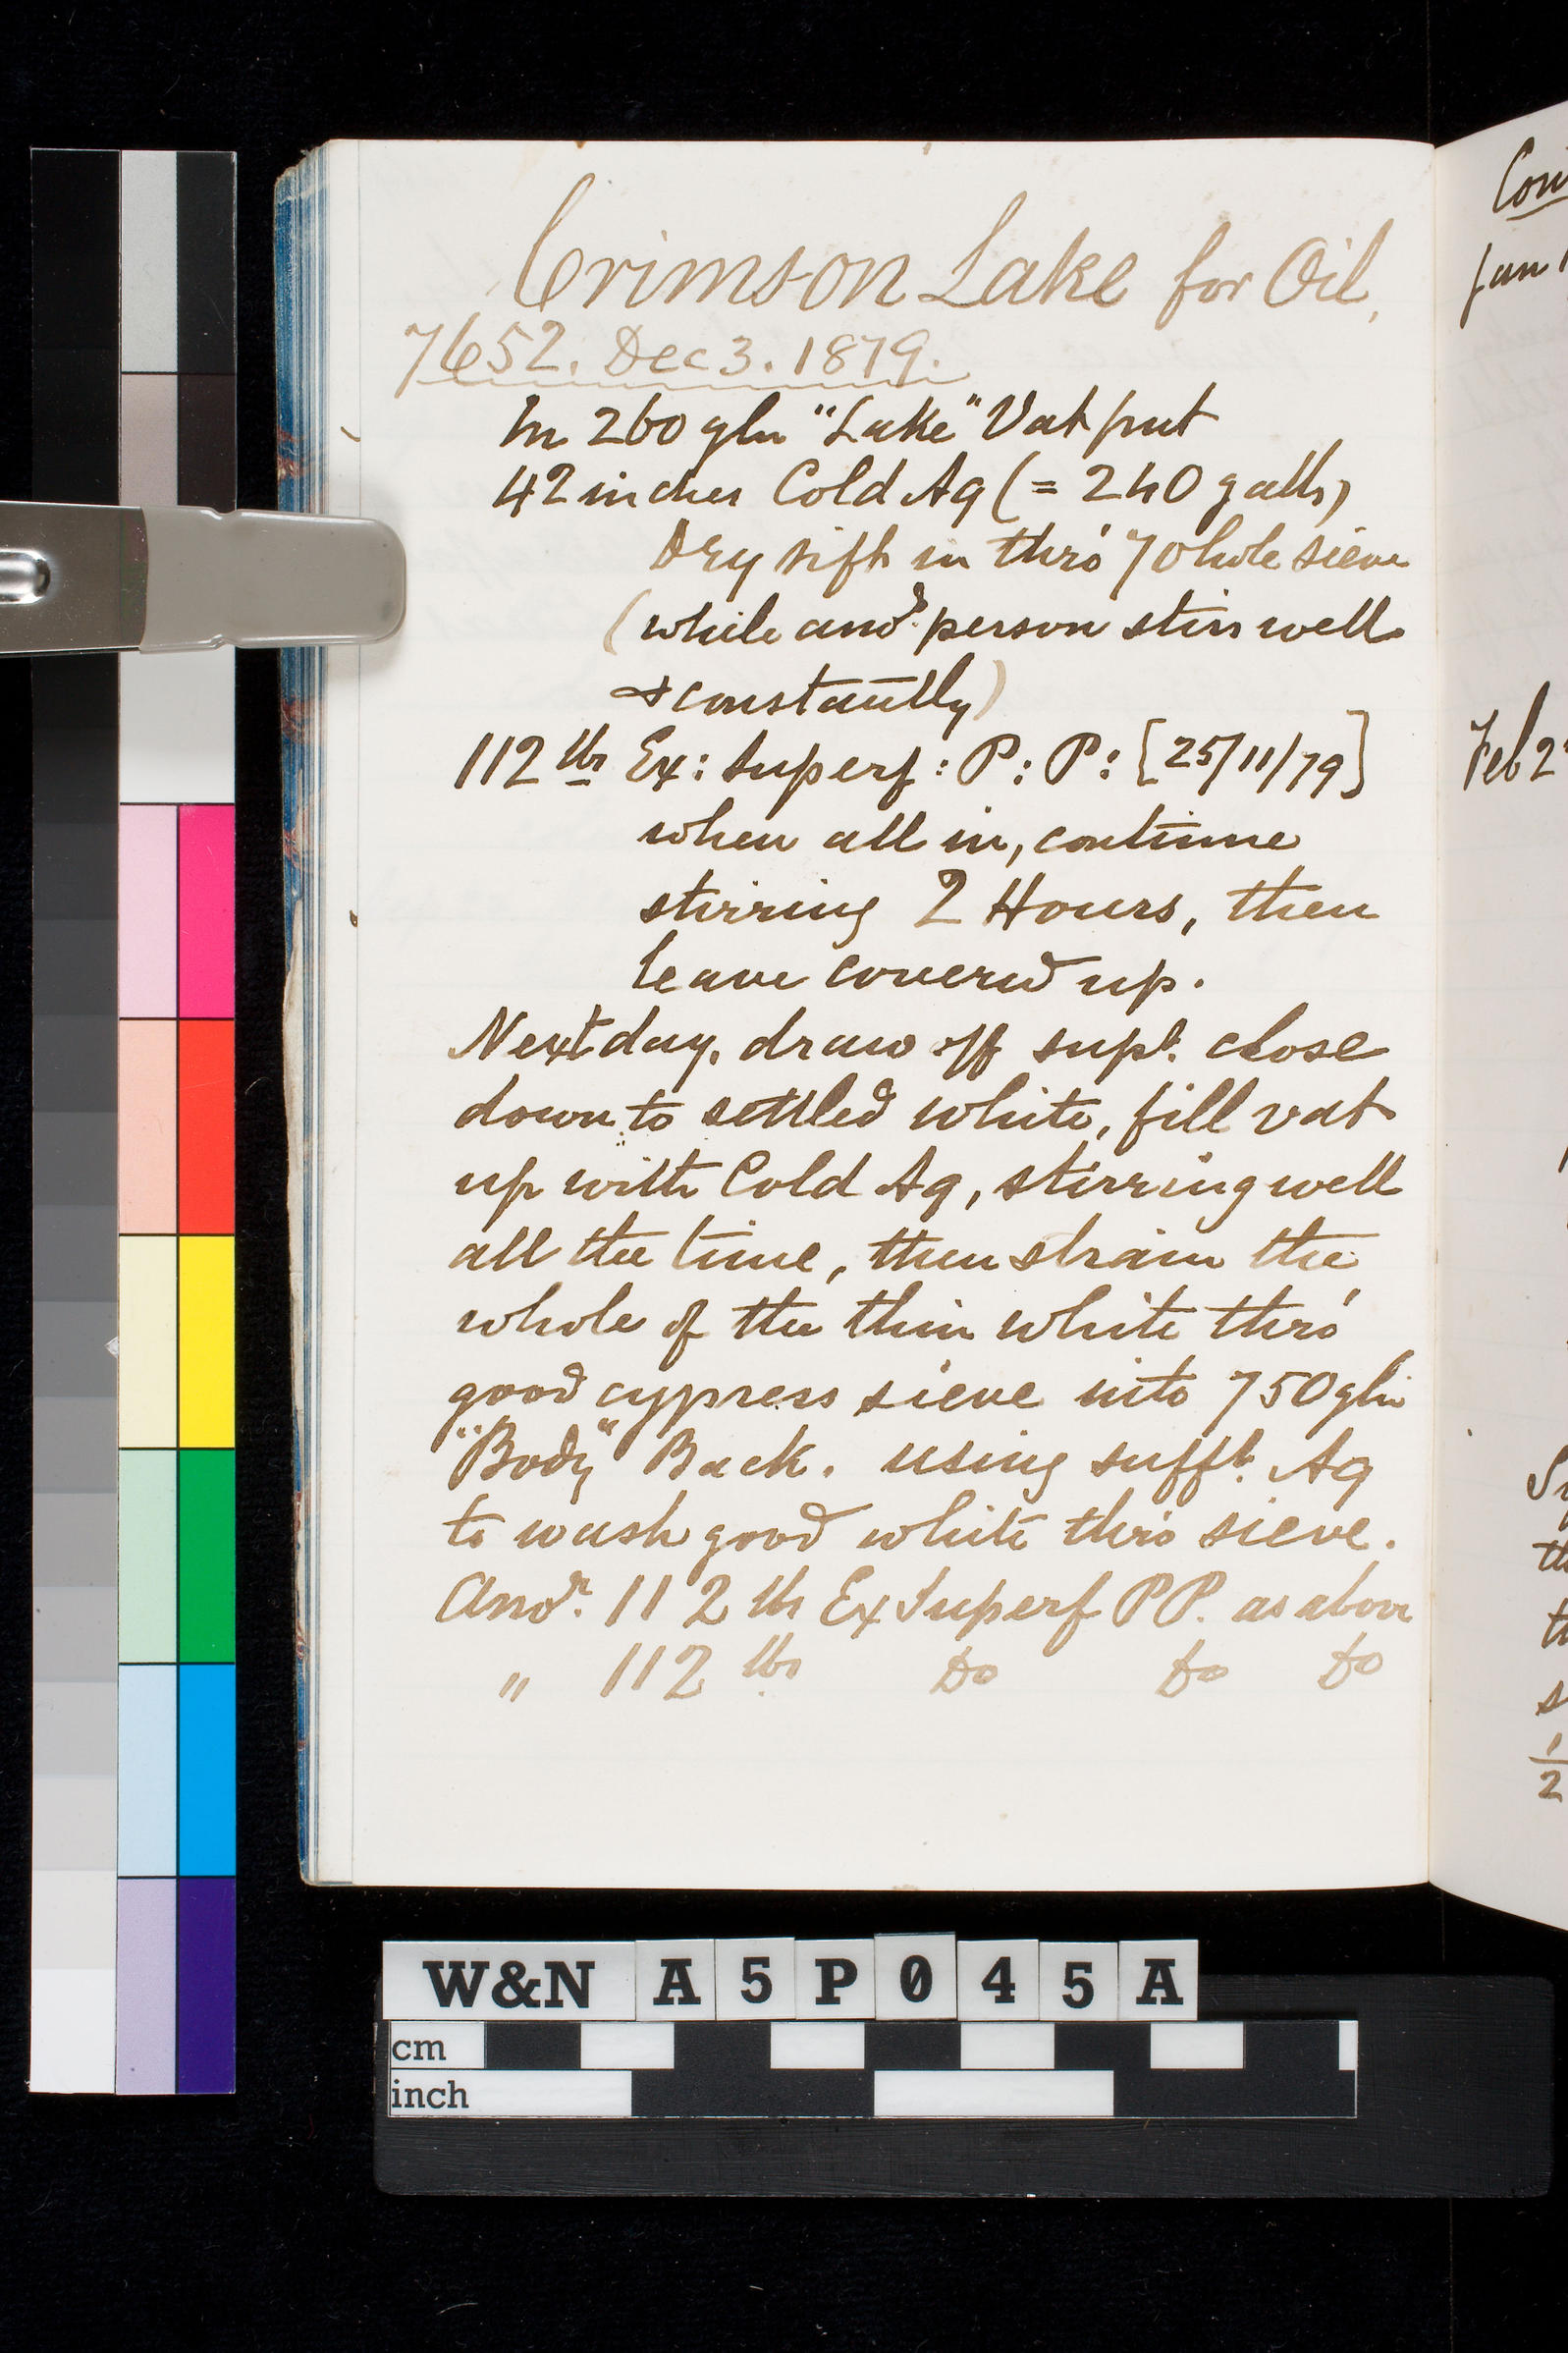 Crimson Lake for Oil,
7652. Dec 3. 1879.
In 260 gln "Lake" Vat put
42 inches Cold Aq (= 240 galls,
Dry sift in thro' 70 hole sieve
(while anor. person stirs well
& constantly)
112 lbs Ex: Superf: P: P: [25/11/79]
when all in, continue
stirring 2 Hours, then
leave covered up.
Next day, draw off supt. close
down to settled white, fill vat
up with Cold Aq, stirring well
all the time, then strain the
whole of the thin white thro'
good cypress sieve into 750 gln
"Body" Back. using sufft. Aq
to wash good white thro sieve.
Anor. 112 lbs Ex Superf PP. as above
" 112 lbs Do Do Do
Feb 2
1/2
W&N A5P045A
cm
inch